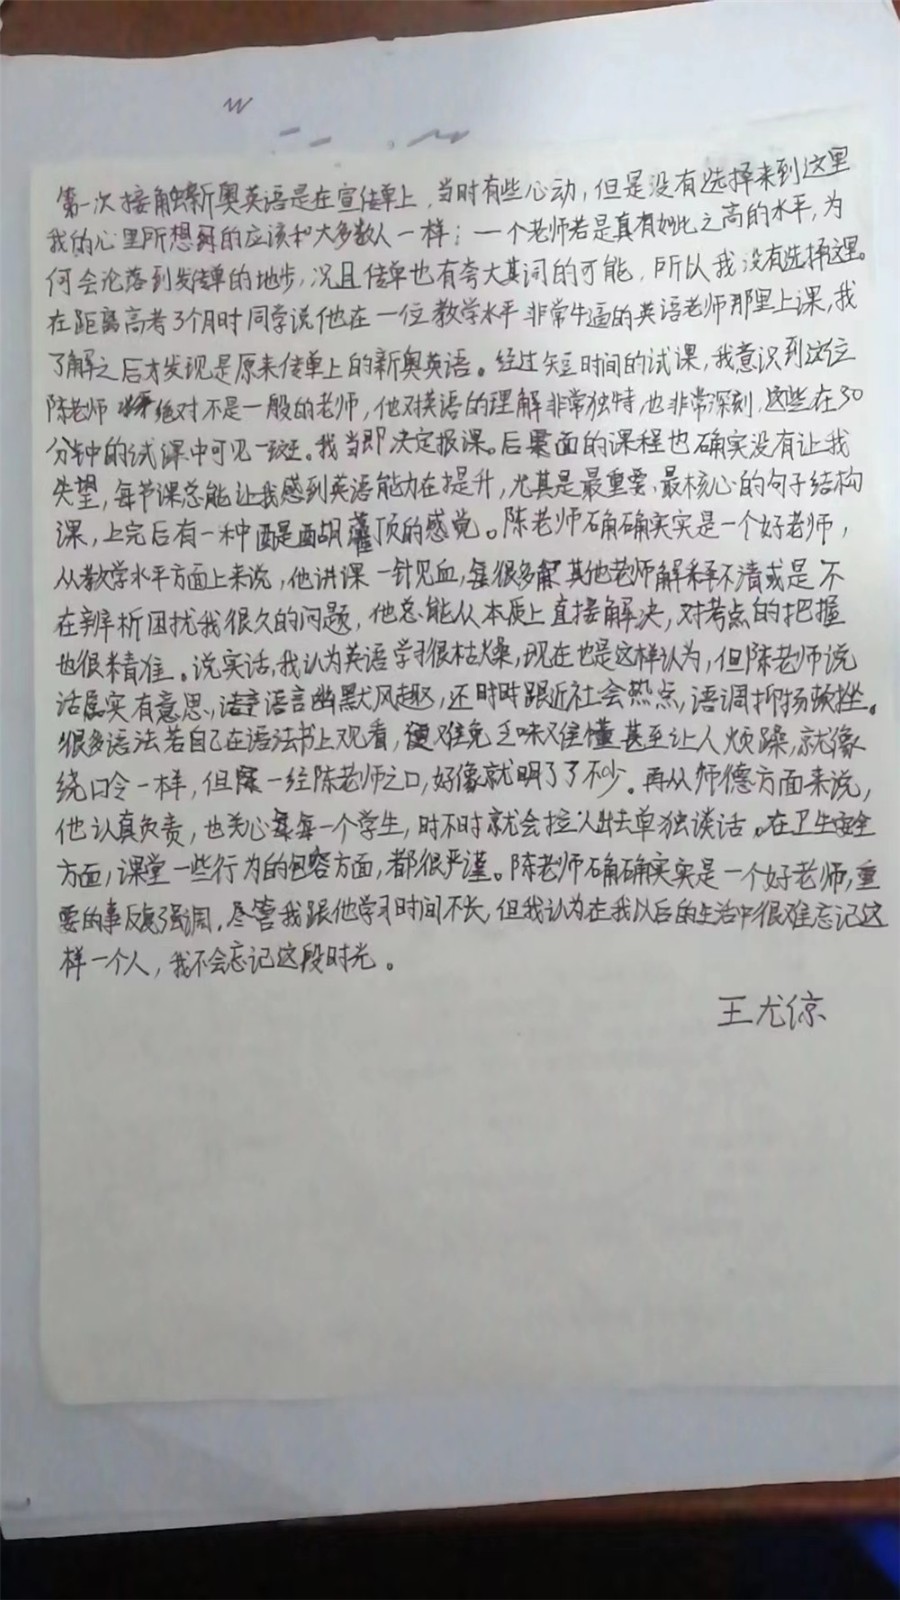 第一次接触新奥英语是在宣传单上，当时有些心动，但是没有选择来到这里
我的心里所想的应该和大多数人一样：一个老师若是真有如此之高的水平，为
何会沦落到发传单的地步，况且传单也有夸大其词的可能，所以我没有选择这里。
在距离高考3个月时同学说他在一位教学水平非常牛逼的英语老师那里上课，我
了解之后才发现是原来传单上的新奥英语。经过短时间的试课，我意识到这位
陈老师绝对不是一般的老师，他对英语的理解非常独特，也非常深刻，这些在30
分钟的试课中可见一斑。我当即决定报课。后面的课程也确实没有让我
失望，每节课总能让我感到英语能力在提升，尤其是最重要、最核心的句子结构
课，上完后有一种醍醐灌顶的感觉。陈老师确确实实是一个好老师，
从教学水平方面上来说，他讲课一针见血，很多其他老师解释不清或是不
在辨析困扰我很久的问题，他总能从本质上直接解决，对考点的把握
也很精准。说实话，我认为英语学习很枯燥，现在也是这样认为，但陈老师说
话属实有意思，语言幽默风趣，还时时跟近社会热点，语调抑扬顿挫。
很多语法若自己在语法书上观看，便难免乏味难懂甚至让人烦躁，就像
绕口令一样，但一经陈老师之口，好像就明了了不少。再从师德方面来说，
他认真负责，也关心每一个学生，时不时就会拉人出去单独谈话。在卫生安全
方面，课堂一些行为的包容方面，都很严谨。陈老师确确实实是一个好老师，重
要的事反复强调，尽管我跟他学习时间不长，但我认为在我以后的生活中很难忘记这
样一个人，我不会忘记这段时光。
王尤